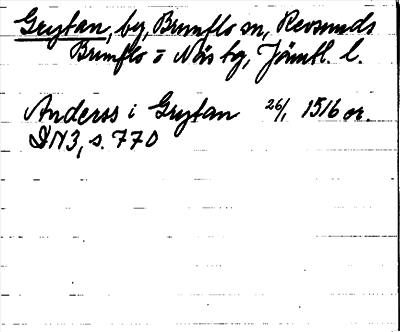 Grytan, by, Brunflo sn, Revsunds
Brunflo o Näs tg, Jämtl. l.
Anderss i Grytan 26/1 1516 or.
DN3, s. 770